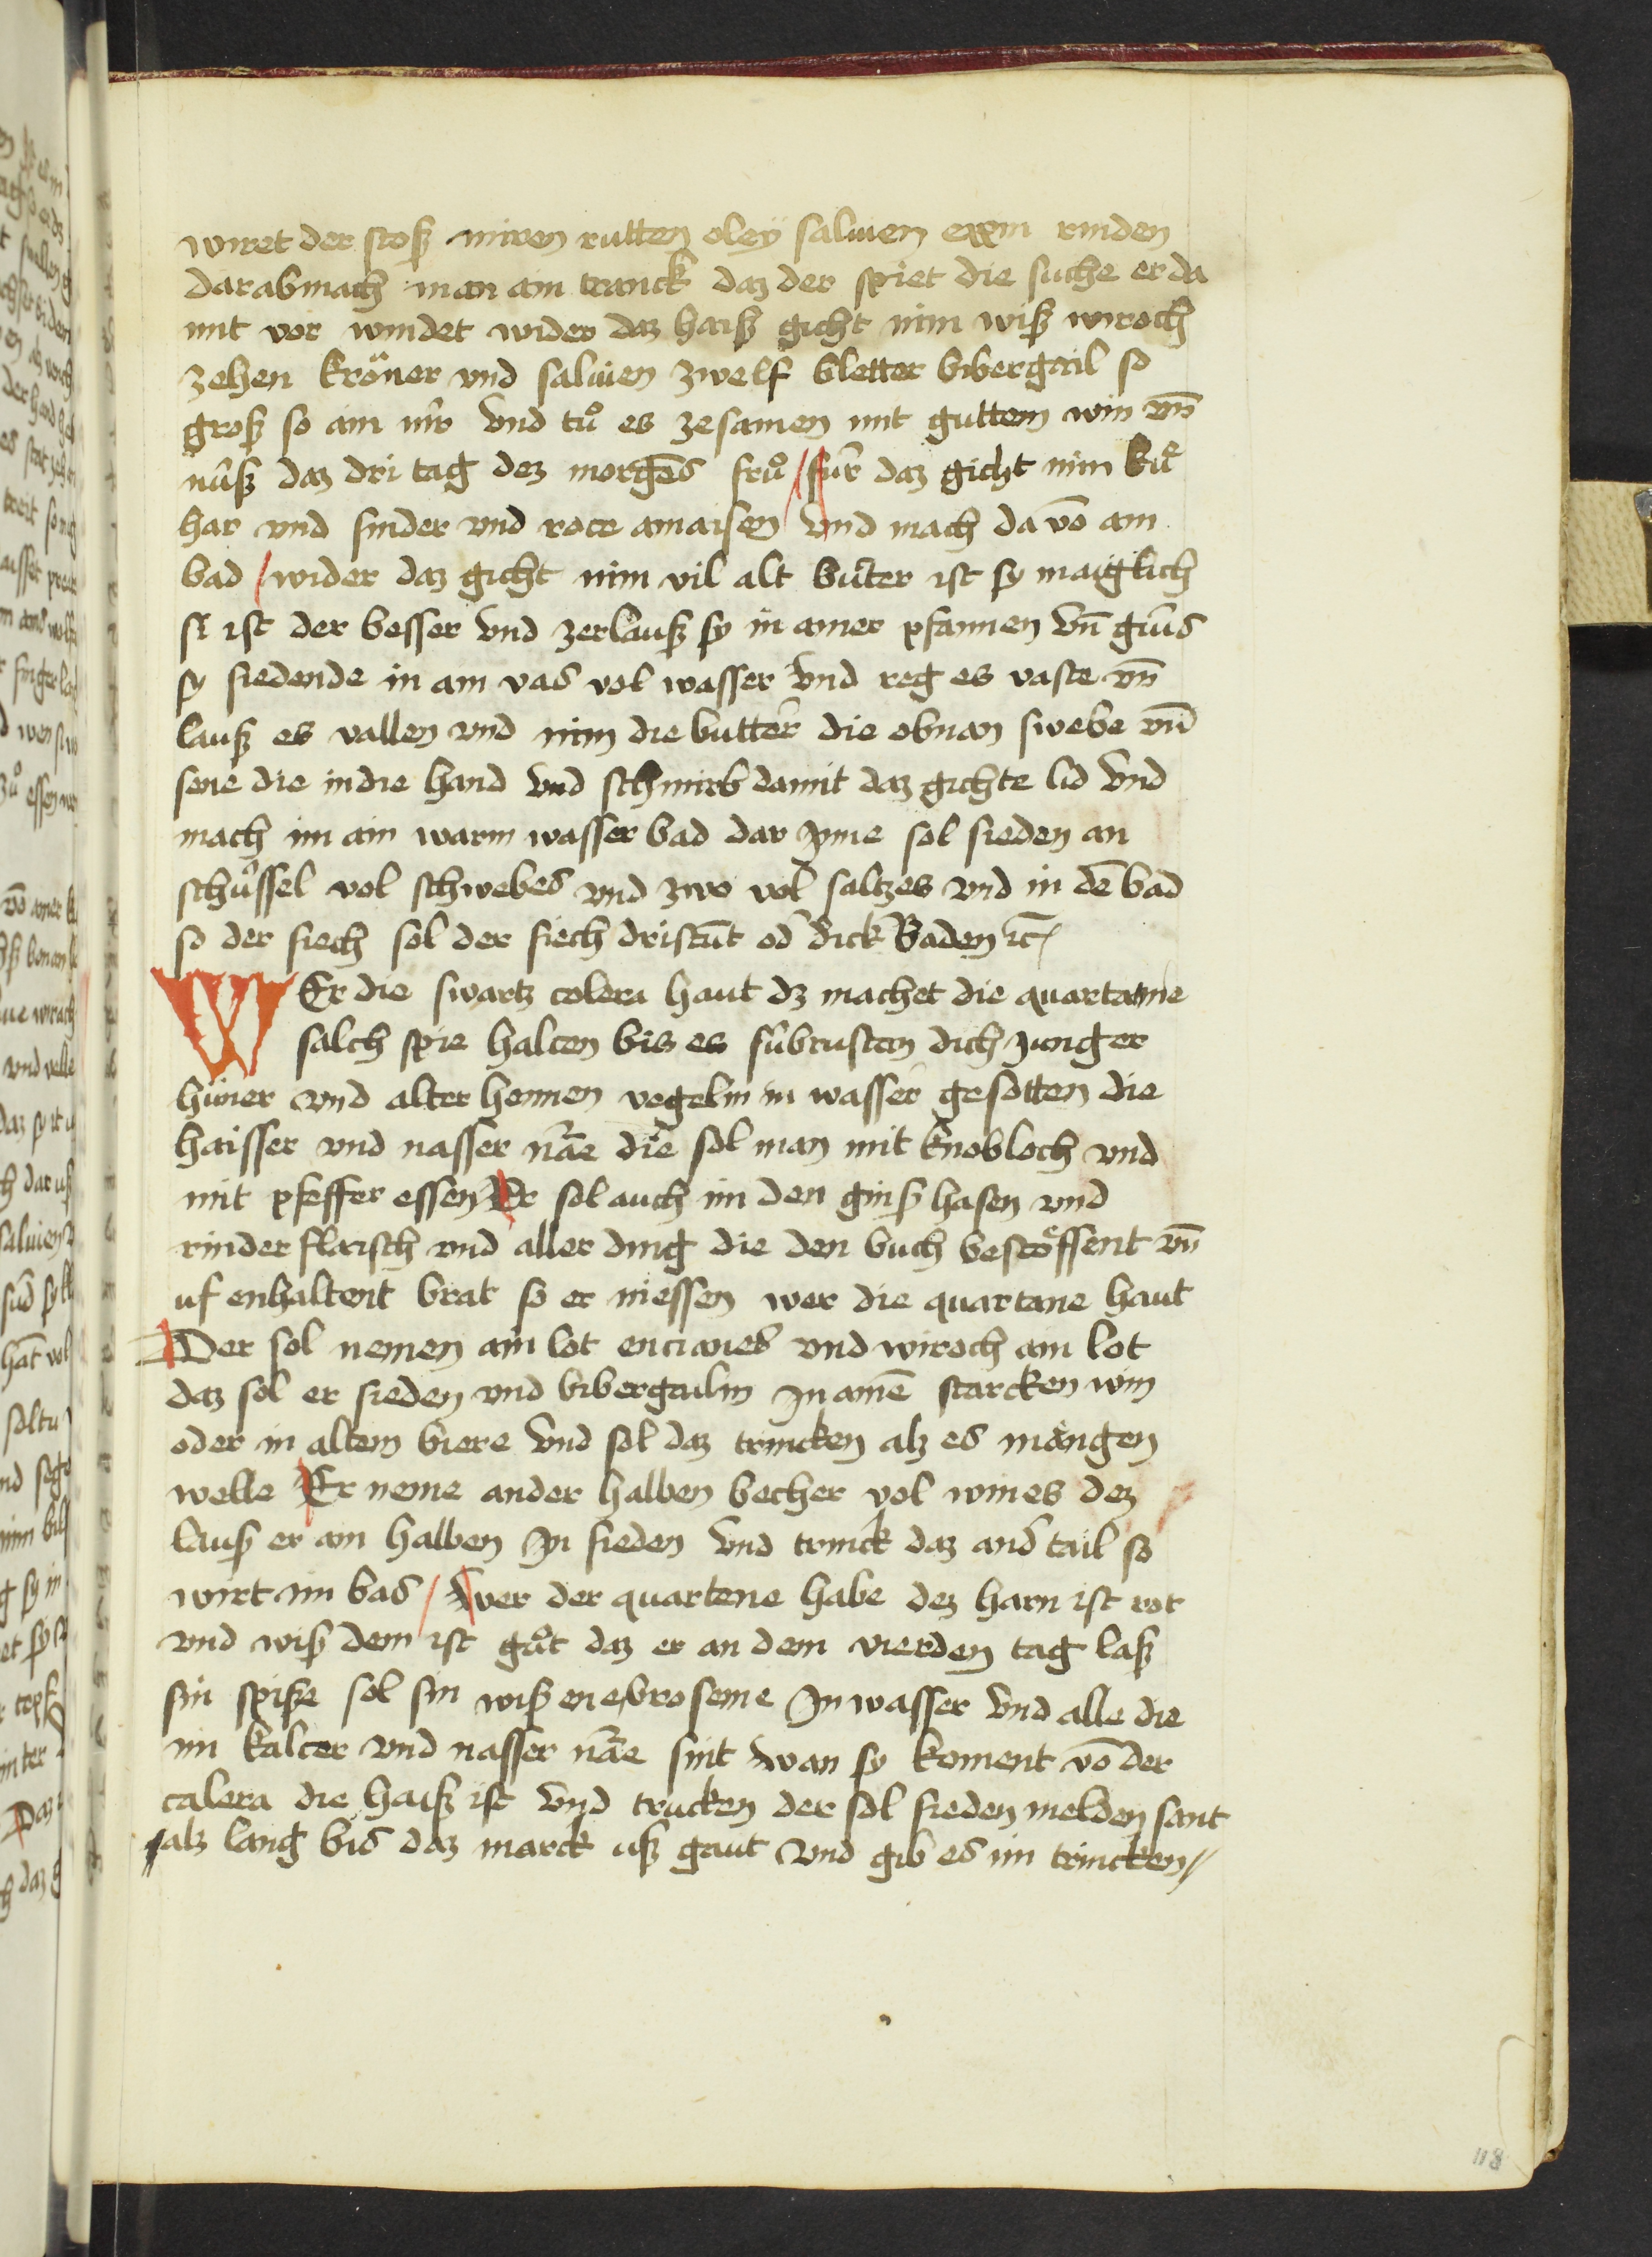 wiret der stosz mirren rutten oley saluien rinden
darabmach man ain tranck daz der spiet die suche er da
mit vor windet wider daz haiß gicht nim wiß wiroch
zehen kröner vnd saluien zwelf bletter bibergail so
groß so ain vnd tů es zesamen mit guttem win vn̄
nüß daz dri tag dez morgēs frů für daz gicht nim
har vnd sinder vnd rote amaisen vnd mach da vō ain
bad wider daz gicht nim vil alt buter ist sy maiglich
si ist der besser vnd zerlauß sy in ainer pfannen vn̄ gius
sy siedende in ain vas vol wasser vnd reg es vaste vn̄
lauß es vallen vnd nim die butter die obnan swebe vn̄
sene die in die hand vnd schmirb damit daz gichte lid vnd
mach im ain warm wasser bad dar Inne sol sieden an
schüssel vol schwebes vnd zwo vol saltzes vnd in dē bad
so der siech sol der siech dristūt od dick Baden ꝛc
WEr die swartz colera haut dz machet die quartane
salch spie halten bis es dich Junger
hüner vnd alter hennen vogelin in wasser gesotten die
haisser vnd nasser nāe die sol man mit knobloch vnd
mit pfeffer essen Er sol auch im den ginß hasen vnd
rinder flaisch vnd aller ding die den buch bestössent vn̄
uf enhaltent brat so er niessen wer die quartane haut
Der sol nemen ain lot encianes vnd wiroch ain lot
daz sol er sieden vnd bibergailin In ainē starcken win
oder in altem biere vnd sol daz trincken alz es mängen
welle Er neme ander halben becher vol wines dez
lauß er ain halben In sieden vnd trinck daz and tail so
wirt im bas wer der quartene habe dez harn ist rot
vnd wiß dem ist gůt daz er an dem vierden tag laß
sin spise sol sin wiß broseme In wasser vnd alle die
im kalter vnd nasser nāe sint wan sy koment vō der
calera die haiß ist vnd trucken der sol sieden melden sant
alz lang bis daz marck uß gaut vnd gib es im trincken
118